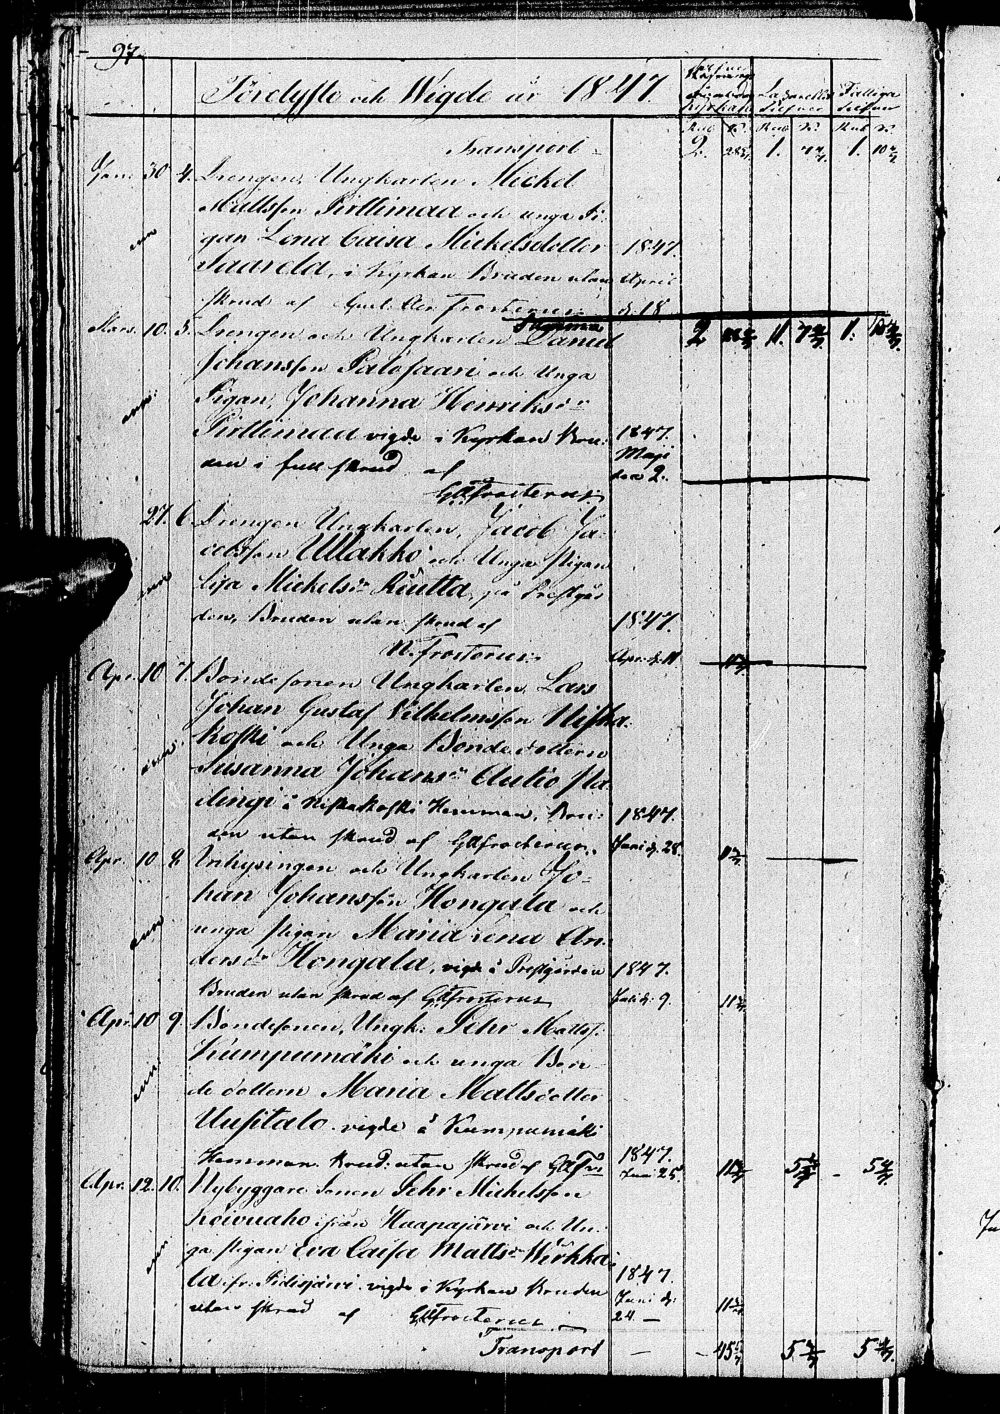 97.
Förelyste och Wigde år 1847.
Kyrkan
Lazarettet
Fattiga
Rub. K. Rub. K. Rub. K.
Transport 2. 1. 1.
Jan. 30 4. Drengen, Ungkarlen Mickel
Mattsson Pirttimaa och unga Pi-
gan Lena Caisa Mickelsdotter 1847.
Saarela, i Kyrkan Bruden utan April
skrud af Frosterus d. 18
Mars. 10. 5. Drengen och Ungkarlen Daniel
Summa 2 1. 1.
Johansson Palosaari och Unga
Pigan, Johanna Henriksdr
Pirttimaa vigde i Kyrkan Bru- 1847.
den i full skrud af Maji
den 2.
Frosterus
27. 6. Drengen Ungkarlen, Jacob Ja-
cobsson Ullakko och Unga pigan
Lisa Mickelsdr Kiutta, på Prestgår
den, Bruden utan skrud af 1847.
Frosterus. Apr. d. 11
Apr. 10 7. Bondesonen Ungkarlen, Lars
Johan Gustaf Vilhelmsson Niska-
koski och Unga Bondedottern
Susanna Johansdr Autio
å Niskakoski Hemman, Bru- 1847.
den utan skrud af Frosterus. Juni d. 28.
Apr. 10 8. Inhysingen och Ungkarlen Jo-
han Johansson Hongala och
unga pigan Maria Lena An-
dersdr Hongala, vigde å Prestgården 1847.
Bruden utan skrud af Frosterus Juli d. 9.
Apr. 10 9. Bondesonen, Ungk: Pehr Matts.
Kumpumäki och unga Bon-
de dottern Maria Mattsdotter
Uusitalo. vigde å Kumpumäki
Hemman. Brud: utan skrud af 1847.
Juni 25.
Apr. 12. 10. Nybyggare Sonen Pehr Mickelsson
Koivuaho ifrån Haapajärvi och Un-
ga pigan Eva Caisa Mattsdr Wirkka-
la fr. Pidisjärvi vigde i Kyrkan Bruden 1847.
utan skrud af Frosterus Juni d:
24. —
Transport